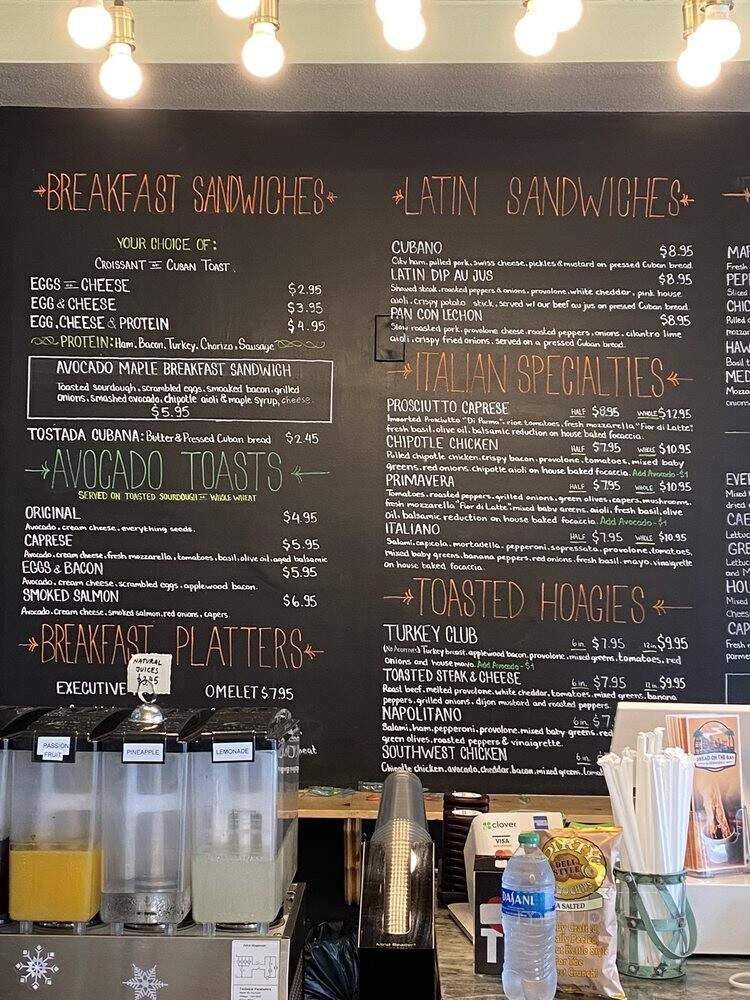 BREAKFAST SANDWICHES
YOUR CHOICE OF:
CROISSANT OR CUBAN TOAST
EGGS OR CHEESE $2.95
EGG & CHEESE $3.95
EGG, CHEESE & PROTEIN $4.95
PROTEIN: Ham, Bacon, Turkey, Chorizo, Sausage
AVOCADO MAPLE BREAKFAST SANDWICH
Toasted sourdough, scrambled eggs, smoked bacon, grilled
onions, smashed avocado, chipotle aioli & maple syrup, cheese.
$5.95
TOSTADA CUBANA: Butter & Pressed Cuban bread $2.45
AVOCADO TOASTS
SERVED ON TOASTED SOURDOUGH OR WHOLE WHEAT
ORIGINAL $4.95
Avocado, cream cheese, everything seeds.
CAPRESE $5.95
Avocado, cream cheese, fresh mozzarella, tomatoes, basil, olive oil, aged balsamic
EGGS & BACON $5.95
Avocado, cream cheese, scrambled eggs, applewood bacon.
SMOKED SALMON $6.95
Avocado, cream cheese, smoked salmon, red onions, capers
BREAKFAST PLATTERS
EXECUTIVE OMELET $7.95
heat
LATIN SANDWICHES
CUBANO $8.95
City ham, pulled pork, swiss cheese, pickles & mustard on pressed Cuban bread
LATIN DIP AU JUS $8.95
Shaved steak, roasted peppers & onions, provolone, white cheddar, pink house
aioli, crispy potato stick, served w/ our beef au jus on pressed Cuban bread
PAN CON LECHON $8.95
Slow roasted pork, provolone cheese, roasted peppers, onions, cilantro lime
aioli, crispy fried onions, served on a pressed Cuban bread.
ITALIAN SPECIALTIES
PROSCIUTTO CAPRESE HALF $8.95 WHOLE $12.95
Imported Prosciutto "Di Parma", ripe tomatoes, fresh mozzarella "Fior di Latte",
fresh basil, olive oil, balsamic reduction on house baked focaccia.
CHIPOTLE CHICKEN HALF $7.95 WHOLE $10.95
Pulled chipotle chicken, crispy bacon, provolone, tomatoes, mixed baby
greens, red onions, chipotle aioli on house baked focaccia. Add Avocado - $1
PRIMAVERA HALF $7.95 WHOLE $10.95
Tomatoes, roasted peppers, grilled onions, green olives, capers, mushrooms,
fresh mozzarella "Fior di Latte", mixed baby greens, aioli, fresh basil, olive
oil, balsamic reduction on house baked focaccia. Add Avocado - $1
ITALIANO HALF $7.95 WHOLE $10.95
Salami, capicola, mortadella, pepperoni, sopressata, provolone, tomatoes,
mixed baby greens, banana peppers, red onions, fresh basil, mayo, vinaigrette
on house baked focaccia.
TOASTED HOAGIES
TURKEY CLUB 6 in. $7.95 12 in $9.95
Turkey breast, applewood bacon, provolone, mixed greens, tomatoes, red
onions and house mayo. Add Avocado - $1
TOASTED STEAK & CHEESE 6 in. $7.95 12 in. $9.95
Roast beef, melted provolone, white cheddar, tomatoes, mixed greens, banana
peppers, grilled onions, dijon mustard and roasted peppers.
NAPOLITANO 6 in. $7.
Salami, ham, pepperoni, provolone, mixed baby greens, red
green olives, roasted peppers & vinaigrette.
SOUTHWEST CHICKEN 6 in
Chipotle chicken, avocado, cheddar, bacon, mixed greens,
MAR
Fresh
PEPP
Sliced
CHIC
Pulled
mozzar
HAW
Basil
MED
Mozza
onions
EVER
Mixed
dried
CAE
Lettuc
GRE
Lettuc
and M
HOU
Mixed
Cheese
CAP
Fresh
parmes
NATURAL
JUICES
PASSION
FRUIT
PINEAPPLE
LEMONADE
Mind Reader
clover
VISA
DASANI
DIRTY
DELI
STYLE
SEA SALTED
BREAD ON THE BAY